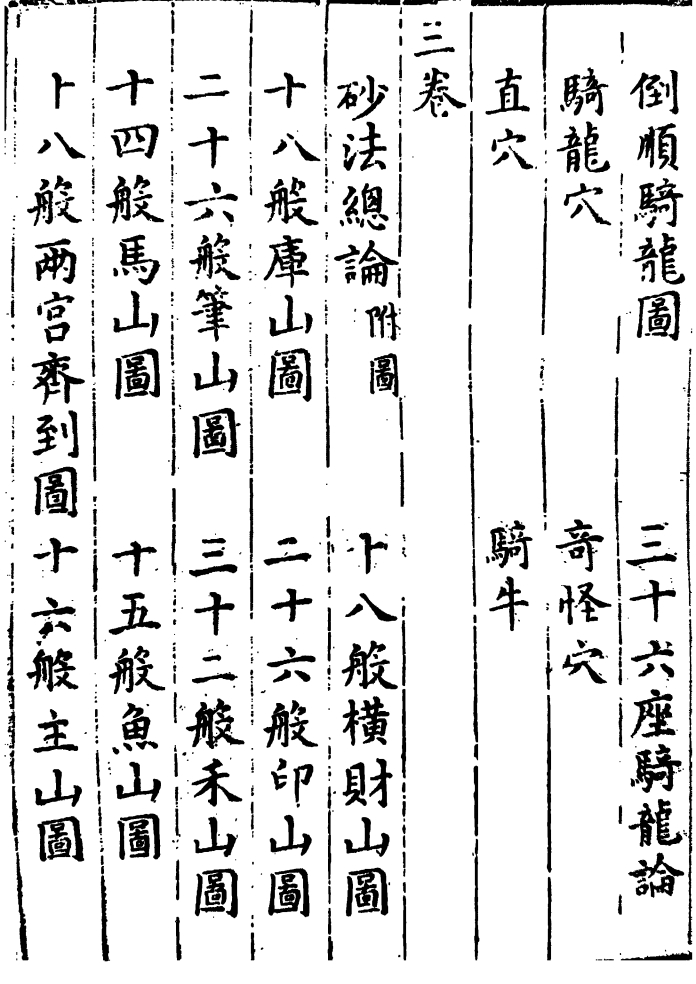 倒順騎龍圖　三十六座騎龍論
騎龍穴　竒怪穴
直穴　騎牛
三卷
砂法總論附圖　十八般橫財山圖
十八般庫山圖　二十六般印山圖
二十六般筆山圖　三十二般禾山圖
十四般馬山圖　十五般魚山圖
十八般兩宫齊到圖　十六般主山圖